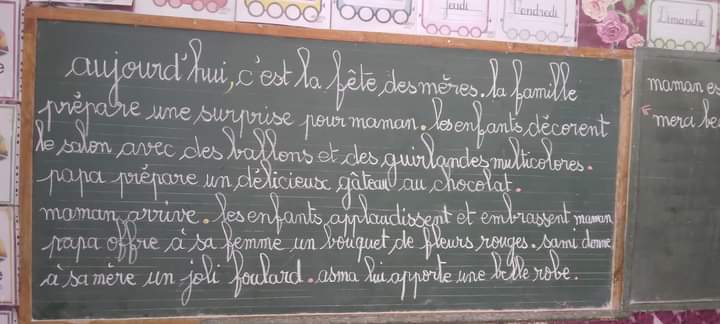 Jeudi
Vendredi
Dimanche
aujourd'hui, c'est la fête des mères. la famille
prépare une surprise pour maman. les enfants décorent
le salon avec des ballons et des guirlandes multicolores.
papa prépare un délicieux gâteau au chocolat.
maman arrive. les enfants applaudissent et embrassent maman
papa offre à sa femme un bouquet de fleurs rouges. sami donne
à sa mère un joli foulard. asma lui apporte une belle robe.
maman es
merci les